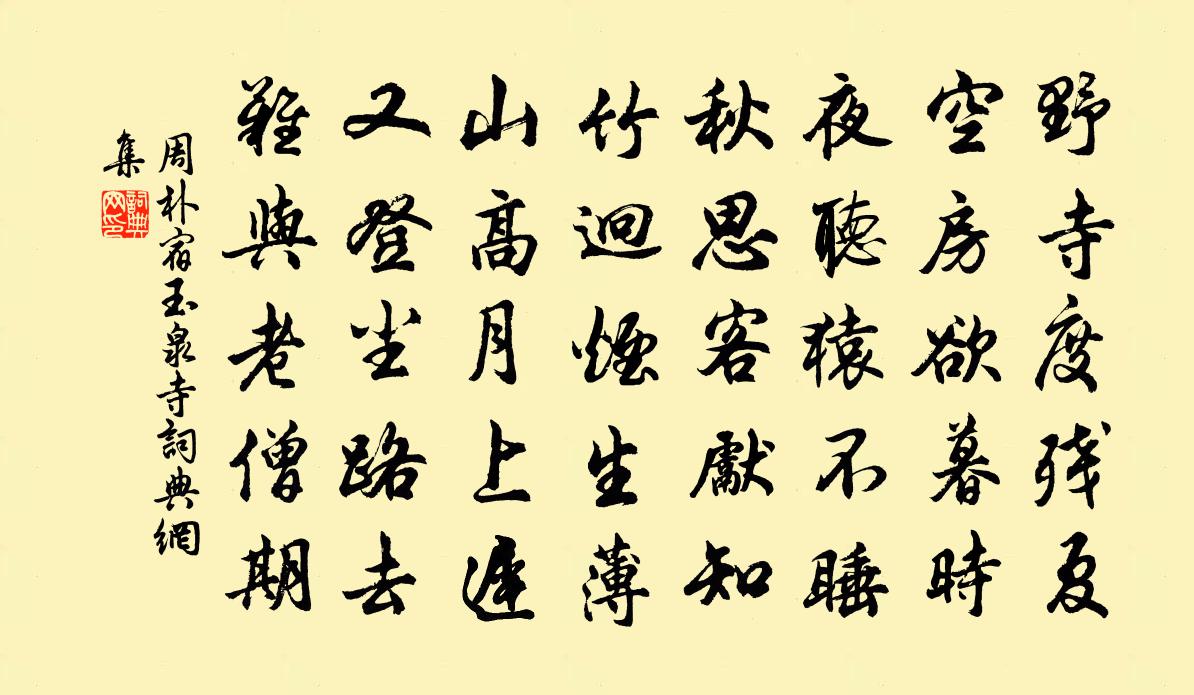 野寺度残夏
空房欲暮時
夜聽猿不睡
秋思客獻知
竹迥煙生薄
山高月上遲
又登尘路去
難與老僧期
周朴宿玉泉寺詞典網
集
詞典
网印